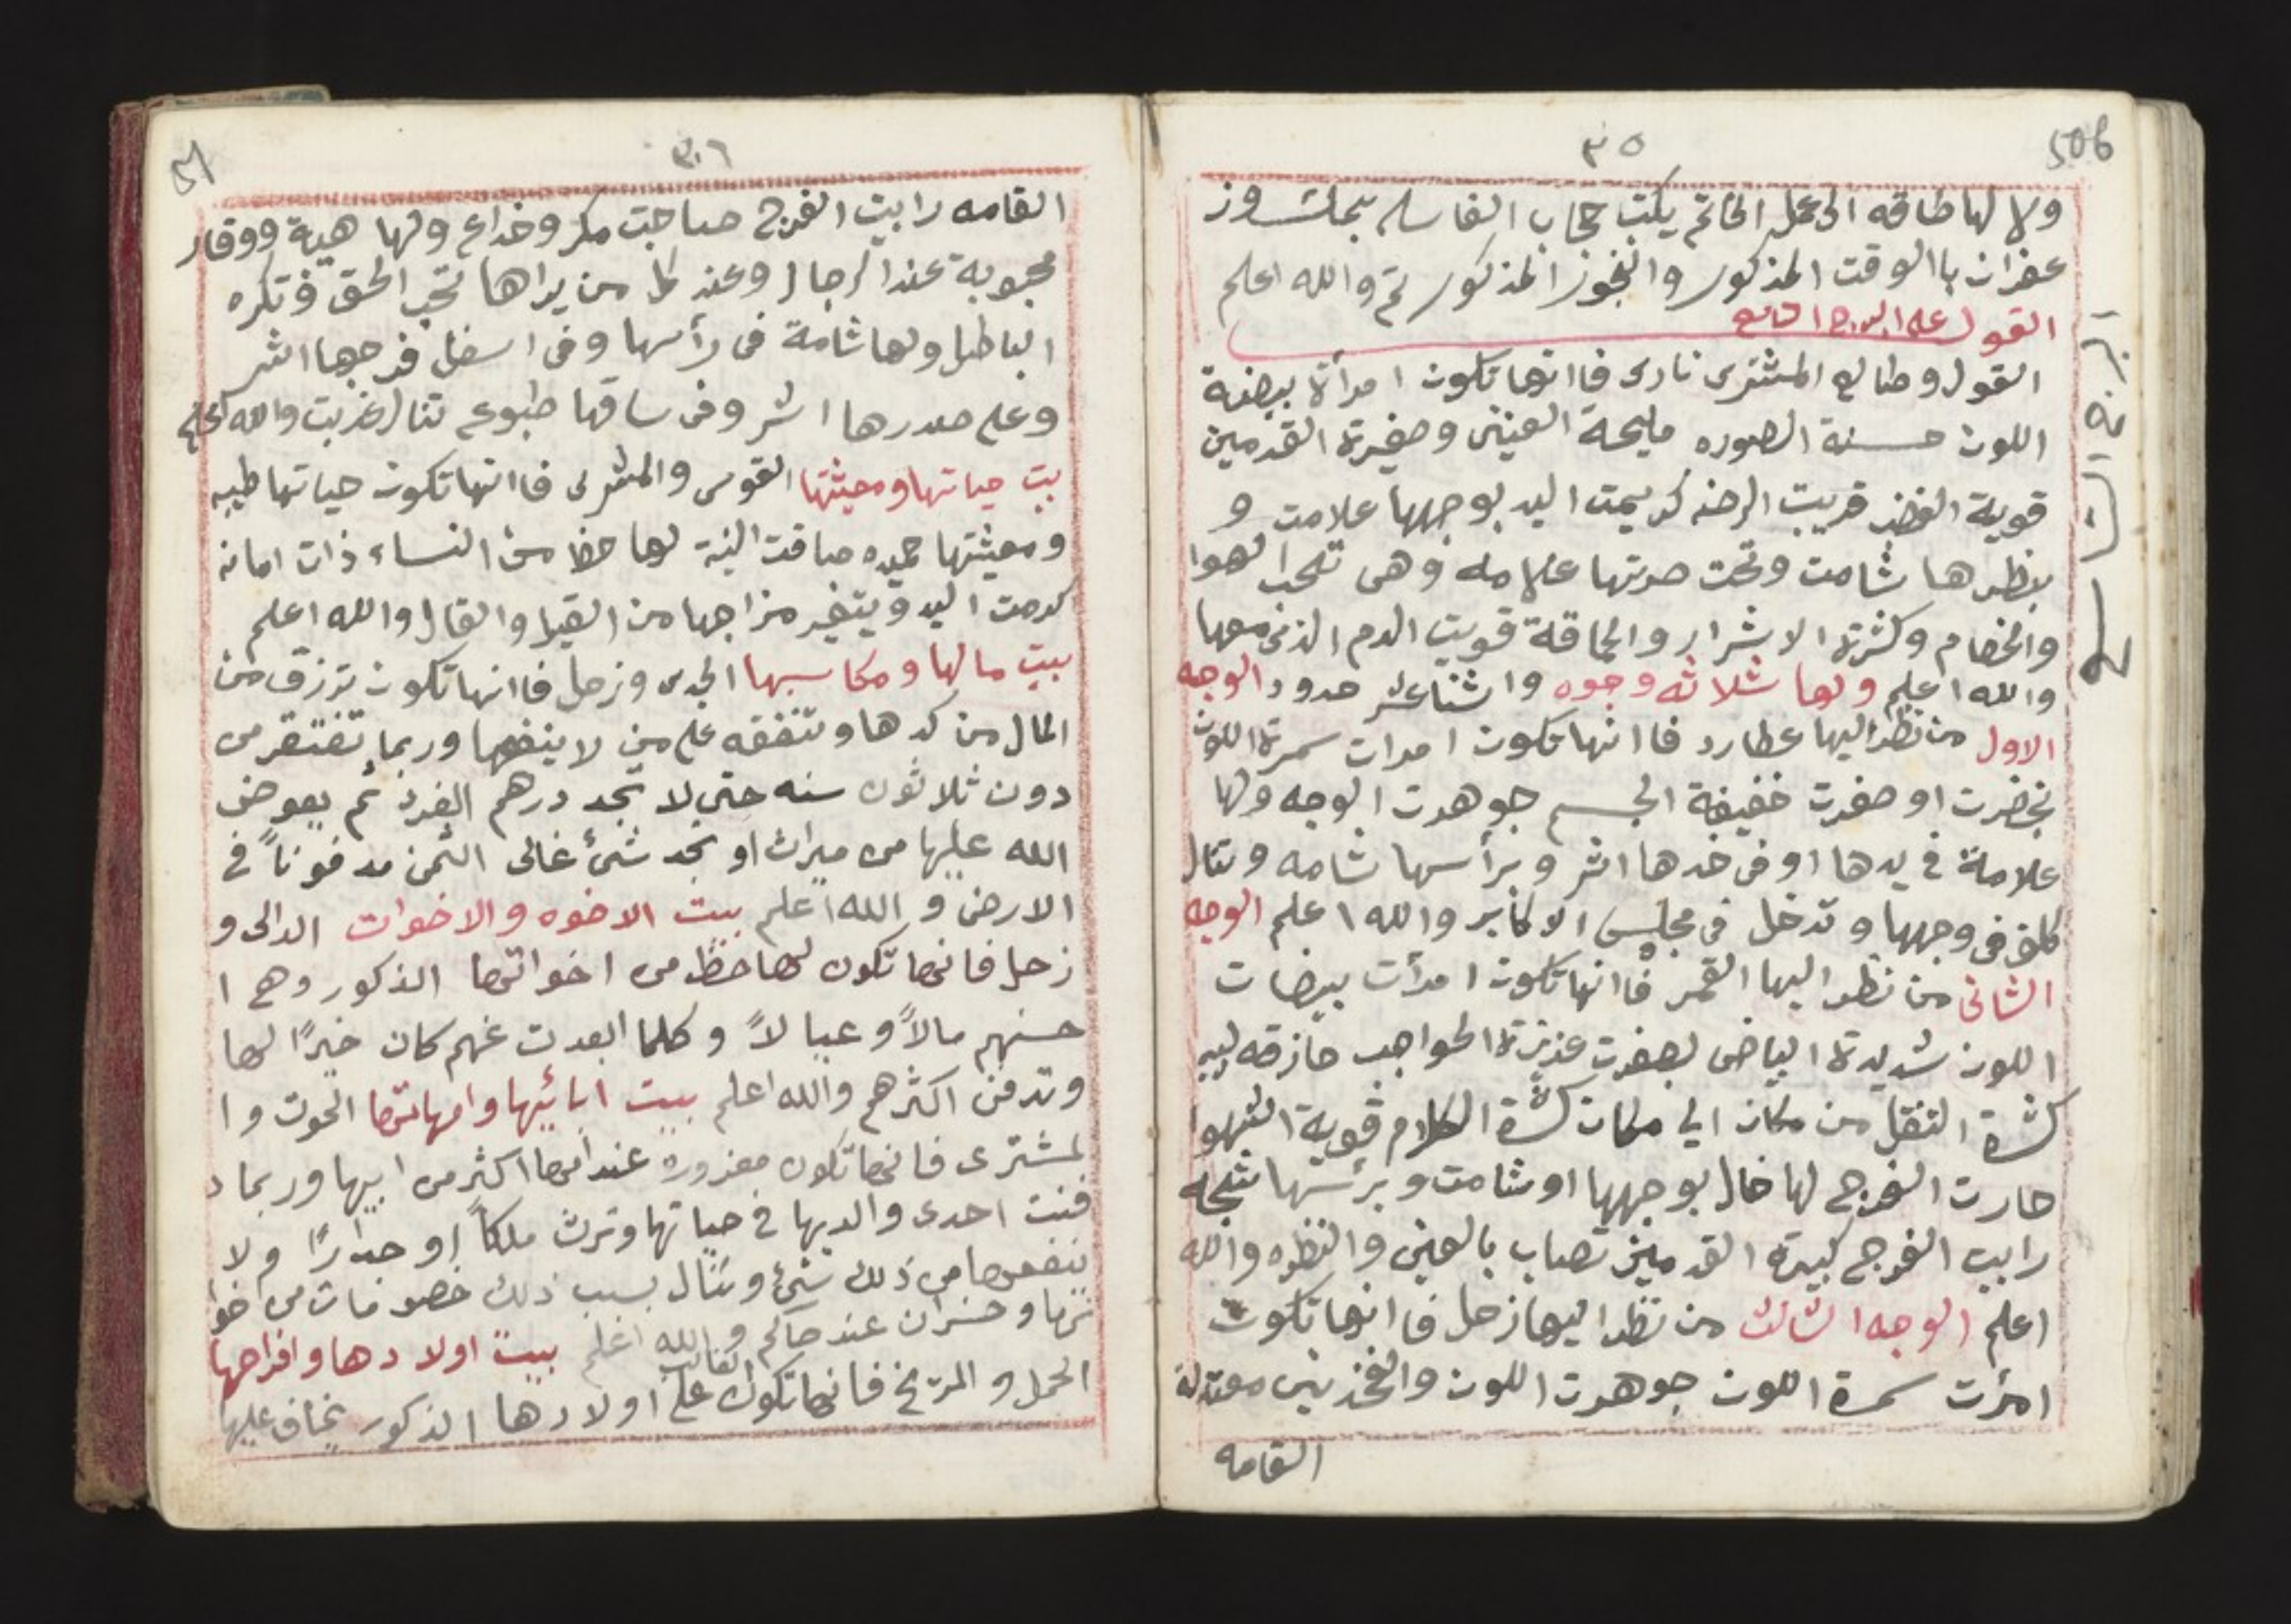 506
٣٥
ولا لها طاقه الى عمل الخاتم يكتب حجاب الفاسله بماء وز
عفران با الوقت المذكور والبخور المذكور تم والله اعلم
القول على البرج التاسع
القول وطالع المشترى نارى فا انها تكون امرأة بيضة
اللون حسنة الصوره مليحة العينين وصغيرة القدمين
قوية الفخذ قريبت الرضه كريمت اليد بوجهها علامت و
بظهرها شامت وتحت صرتها علامه وهى تحب الهوا
والخصام وكثرة الاشرار والحماقة قويت الدم الذى معها
والله اعلم ولها ثلاثه وجوه واثنا عشر حدود الوجه
الاول من نظر اليها عطارد فا انها تكون امرات سمرة اللون
بخضرت او صفرت خفيفة الجسم جوهرت الوجه ولها
علامة في يدها او فى خدها اثر وبرأسها شامه وتنال
كلف فى وجهها وتدخل فى مجلس الاكابر والله اعلم الوجه
الثانى من نظر اليها القمر فا انها تكون امرأت بيضات
اللون شديدة البياض بصفرت عزيزة الحواجب حازقه لبيبه
كثرة التنقل من مكان الي مكان كثرة الكلام قوية الشهوا
حارت الفرج لها خال بوجهها او شامت وبرئسها شجه
رابيت الفرج كبيرة القدمين تصاب بالعين والنظره والله
اعلم الوجه الثالث من نظر اليها زحل فا انها تكون
امرٔت سمرة اللون جوهرت اللون والفخذين معتدلة
القامه
51
٣٦
القامه رابيت الفرج صاحبت مكر وخداع ولها هيبة ووقار
محبوبة عند الرجال وعند كل من يراها تحب الحق وتكره
الباطل ولها شامة فى رأسها وفى اسفل فرجها اثر
وعلى صدرها اثر وفى ساقها طبوع تنال غربت والله اعلم
بيت حياتها ومعيثتها القوس والمشترى فا انها تكون حياتها طيبه
ومعيثتها حميده صافت النية لها حظ من النساء ذات امانه
كرمت اليد ويتغير مزاجها من القيل والقال والله اعلم
بيت مالها ومكاسبها الجدى وزحل فا انها تكون ترزق من
المال من كدها وتنفقه على من لا ينفعها وربما تفتقر من
دون ثلاثون سنه حتى لا تجد درهم الفرد ثم يعوض
الله عليها من ميراث او تجد شئ غالى الثمن مدفوناً في
الارض و الله اعلم بيت الاخوه والاخوات الدالى و
زحل فانها تكون لها حظ من اخواتها الذكور وهم ا
حسنهم مالاً وعيالاً وكلما ابعدت عنهم كان خيرًا لها
وتدفن اكثرهم والله اعلم بيت ابائيها وامهاتها الحوت وا
لمشترى فانها تكون معزوره عند امها اكثر من ابيها وربما د
فنت احدى والديها في حياتها وترث ملكاً او جدارًا ولا
ينفعها من ذلك شئ وتنال بسبب ذلك خصومات من اخوا
تها وخسران عند حاكم والله اعلم بيت اولادها وافراحها
الحمل والمريخ فانها تكون الغالب على اولادها الذكور يخاف عليها